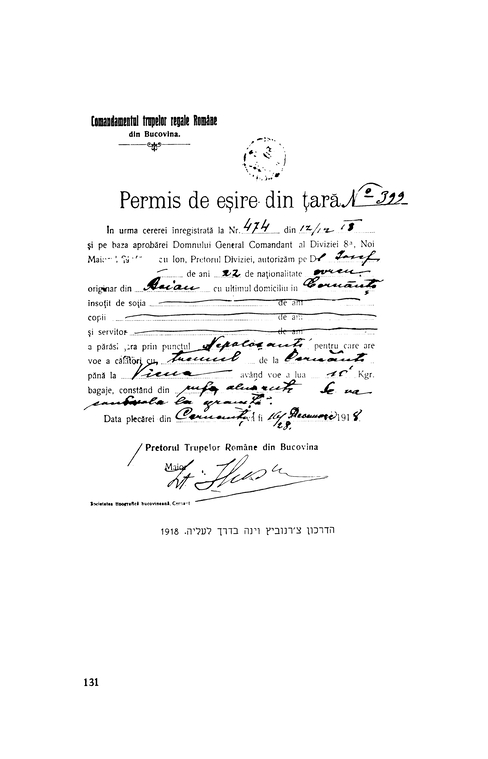 Comandamentul trupelor regale Române
din Bucovina.
Permis de eșire din țară No 399
În urma cererei înregistrată la Nr. 474 din 12/12 18
și pe baza aprobărei Domnului General Comandant al Diviziei 8ª, Noi
Maior cu Ion, Pretorul Diviziei, autorizăm pe Dl Iosef
de ani 22 de naționalitate evreu
originar din Boian cu ultimul domiciliu în Cernăuț
însoțit de soția de ani
copii de ani
și servitor de ani
a părăsi țara prin punctul Nepolocăuți pentru care are
voe a călători cu trenul de la Cernăuți
până la Viena având voe a lua 15 Kgr.
bagaje, constând din rufe Se va
la graniță.
Data plecărei din Cernăuți fi 16/28 Decemvrie 1918.
Pretorul Trupelor Române din Bucovina
Maior
Lt.
Societatea tipografică bucovineană, Cernăuți
הדרכון צ'רנוביץ וינה בדרך לעליה. 1918
131